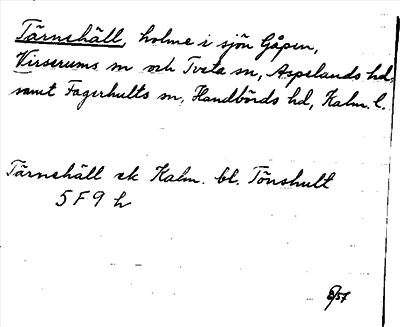 Tärnehäll, holme i sjön Gåpen,
Virserums sn och Tveta sn, Aspelands hd,
samt Fagerhults sn, Handbörds hd, Kalm. l.
Tärnehäll ek Kalm. bl. Tönshult
5 F 9 h